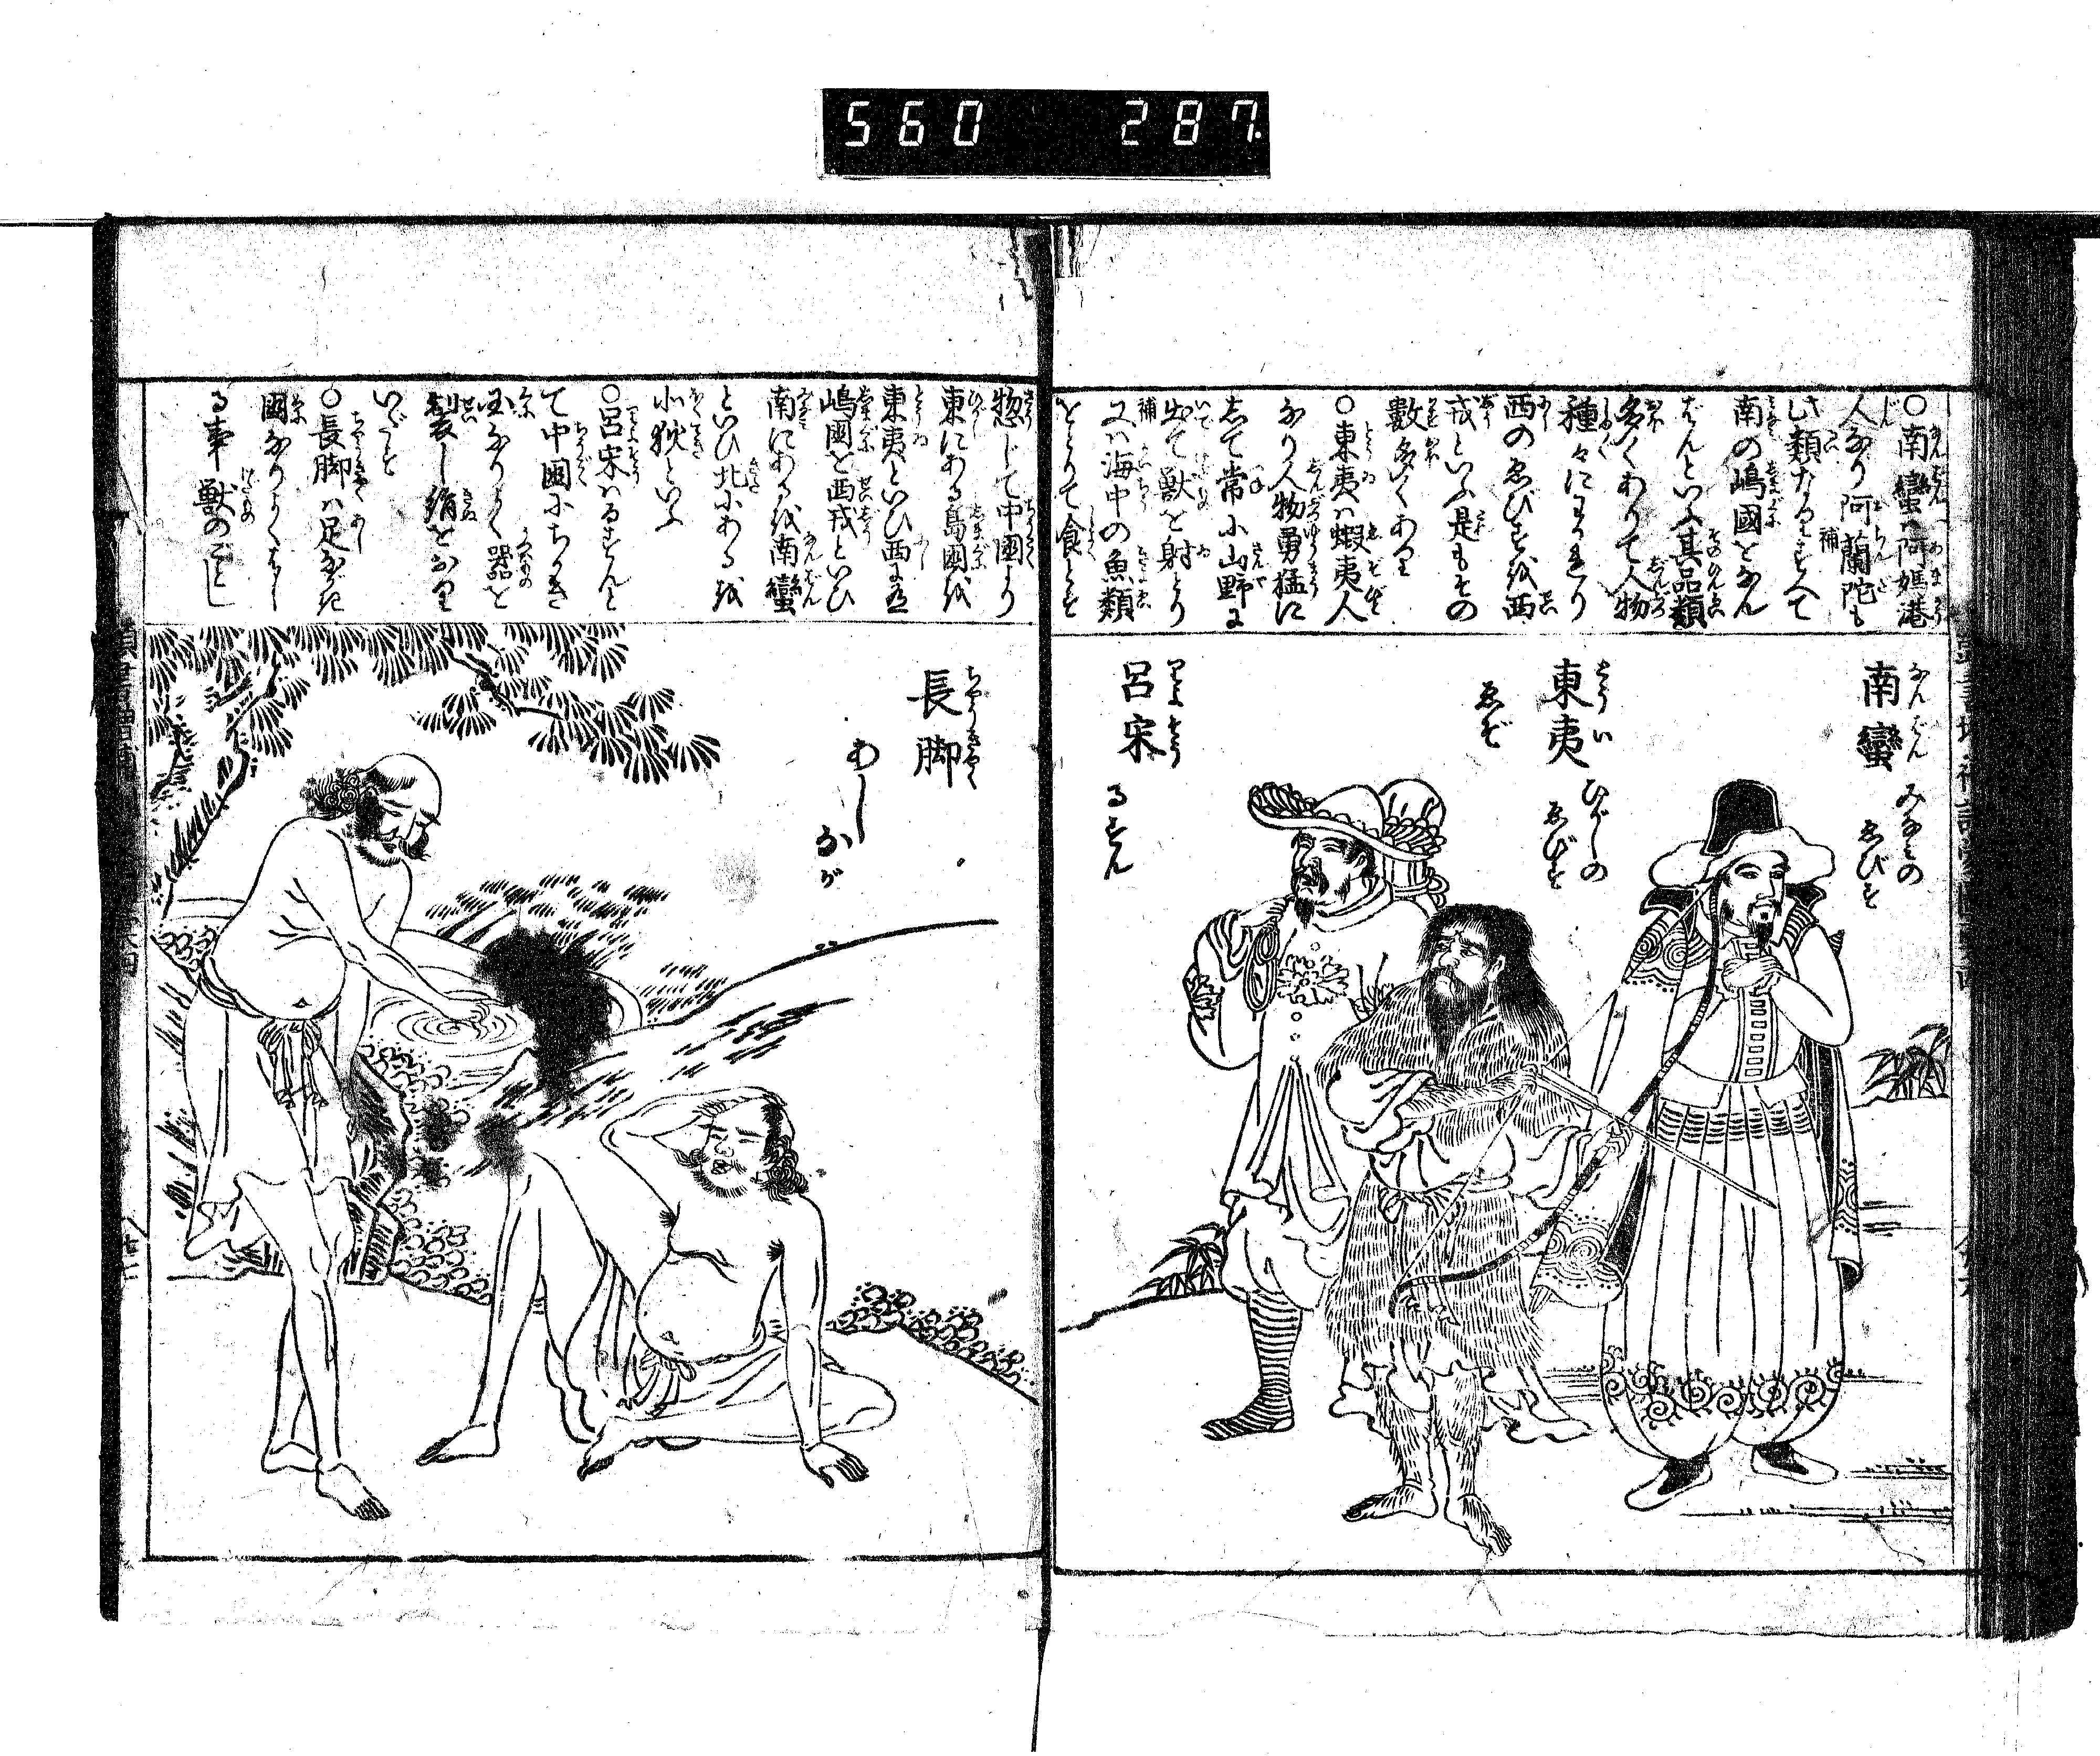 560 287
○南蠻ハ阿媽港
人なり阿蘭陀も
此類なり都へて
南の嶋國をなん
ばんといふ其品類
多くわかりて人物
種々にわかれり
西のゑびすを西
戎といふ是もその
數多くあり
○東夷ハ蝦夷人
なり人物勇猛に
して常に山野に
出て獣を射とり
補又ハ海中の魚類
をとりて食とす
南蠻 なんばん みなみのゑびす
東夷 とうい ひがしのゑびす
ゑぞ
呂宋 りよそう
るすん
惣じて中國より
東にある島國を
東夷といひ西にある
嶋國を西戎といひ
南にあるを南蠻
といひ北にあるを
北狄といふ
○呂宋ハるすんと
て中國にちかき
国なりよく器を
製し絹をおり
いだす
○長脚ハ足ながき
國なりよくはし
る事獣のごとし
長脚 ちやうきやく
あしなが